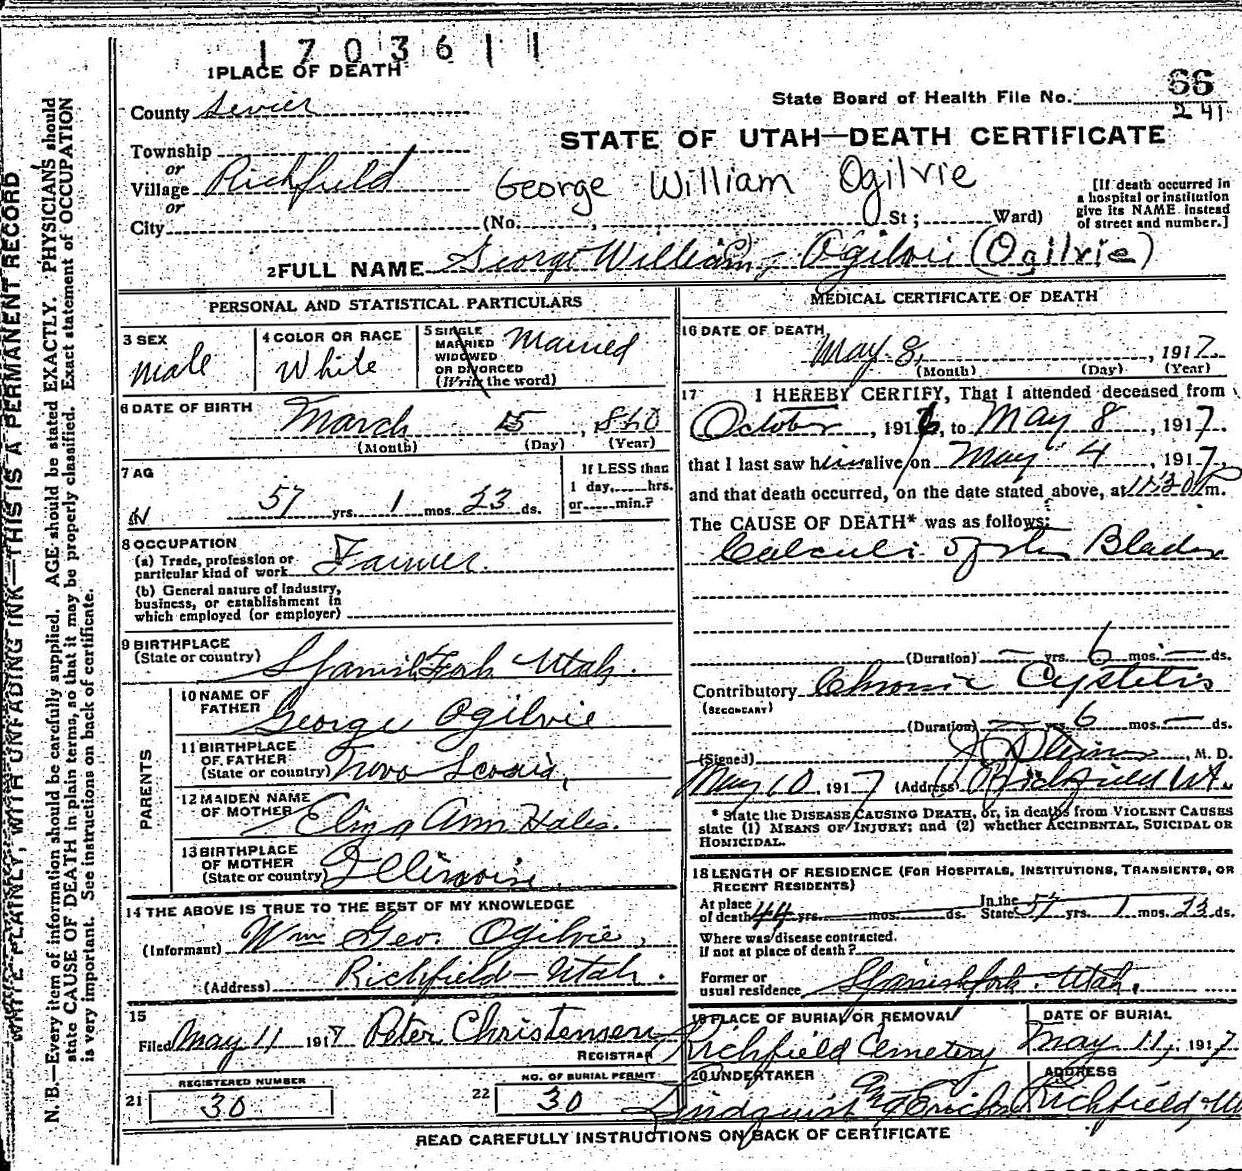 1703611
1 PLACE OF DEATH
66
State Board of Health File No.
241
County Sevier
STATE OF UTAH—DEATH CERTIFICATE
Township
or
Village Richfield
George William Ogilvie
[If death occurred in
a hospital or institution
give its NAME instead
of street and number.]
or
City (No. St; Ward)
2 FULL NAME George William Ogilvii (Ogilvie)
PERSONAL AND STATISTICAL PARTICULARS
3 SEX
Male
4 COLOR OR RACE
White
5 SINGLE
MARRIED
WIDOWED
OR DIVORCED
(Write the word)
Married
6 DATE OF BIRTH
March 15, 1860
(Month) (Day) (Year)
7 AG
57 yrs. 1 mos. 23 ds.
If LESS than
1 day, hrs.
or min.?
8 OCCUPATION
(a) Trade, profession or
particular kind of work Farmer.
(b) General nature of industry,
business, or establishment in
which employed (or employer)
9 BIRTHPLACE
(State or country) Spanish Fork Utah.
PARENTS
10 NAME OF
FATHER George Ogilvie
11 BIRTHPLACE
OF FATHER
(State or country) Nova Scosia,
12 MAIDEN NAME
OF MOTHER Eliza Ann Hales.
13 BIRTHPLACE
OF MOTHER
(State or country) Illinois.
14 THE ABOVE IS TRUE TO THE BEST OF MY KNOWLEDGE
(Informant) Wm Geo. Ogilvie,
(Address) Richfield—Utah.
15
Filed May 11 1917 Peter Christensen
REGISTRAR
REGISTERED NUMBER
21 30
NO. OF BURIAL PERMIT
22 30
MEDICAL CERTIFICATE OF DEATH
16 DATE OF DEATH
May 8, 1917.
(Month) (Day) (Year)
17 I HEREBY CERTIFY, That I attended deceased from
October, 1916, to May 8, 1917
that I last saw him alive on May 4, 1917,
and that death occurred, on the date stated above, at 11:30 P m.
The CAUSE OF DEATH* was as follows:
Calculi of the Bladder
(Duration) — yrs. 6 mos. — ds.
Contributory Chronic Cystitis
(SECONDARY)
(Duration) — yrs. 6 mos. — ds.
(Signed) M. D.
May 10. 1917 (Address) Richfield Ut.
* State the DISEASE CAUSING DEATH, or, in deaths from VIOLENT CAUSES
state (1) MEANS OF INJURY; and (2) whether ACCIDENTAL, SUICIDAL OR
HOMICIDAL.
18 LENGTH OF RESIDENCE (FOR HOSPITALS, INSTITUTIONS, TRANSIENTS, OR
RECENT RESIDENTS)
At place
of death 44 yrs. mos. ds. In the
State 57 yrs. 1 mos. 23 ds.
Where was disease contracted.
if not at place of death?
Former or
usual residence Spanish fork. Utah.
19 PLACE OF BURIAL OR REMOVAL
Richfield Cemetery
DATE OF BURIAL
May 11, 1917
20 UNDERTAKER
Lindquist
ADDRESS
Richfield, Ut
READ CAREFULLY INSTRUCTIONS ON BACK OF CERTIFICATE
WRITE PLAINLY, WITH UNFADING INK—THIS IS A PERMANENT RECORD
N. B.—Every item of information should be carefully supplied. AGE should be stated EXACTLY. PHYSICIANS should
state CAUSE OF DEATH in plain terms, so that it may be properly classified. Exact statement of OCCUPATION
is very important. See instructions on back of certificate.